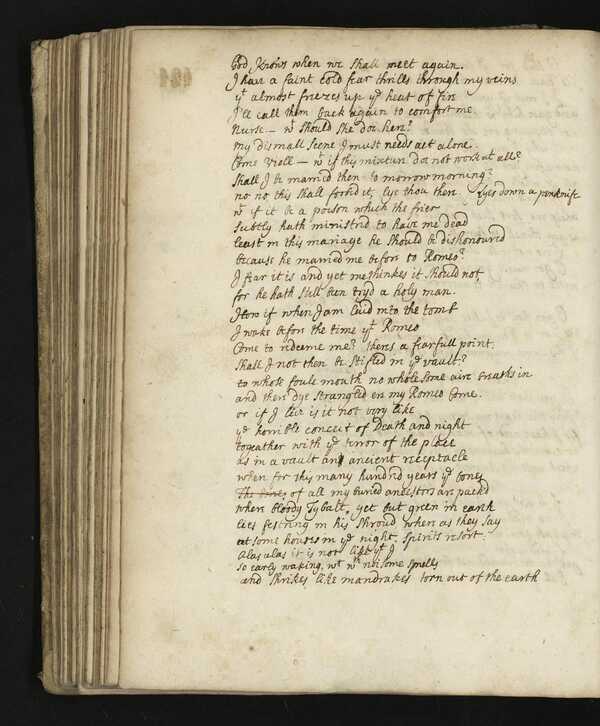 God knows when we shall meet again.
I have a faint cold fear thrills through my veins
yt almost friezes up ye heat of fire
I'll call them back again to comfort me
Nurse — wt should she doe here?
my dismall scene I must needs act alone.
Come Violl — wt if this mixture doe not work at all?
Shall I be married then to morrow morning?
no no this shall forbid it, lye thou there lyes down a penknife
wt if it be a poison which the frier
Subtly hath ministred to have me dead
least in this mariage he should be dishonoured
because he married me before to Romeo?
I fear it is and yet me thinkes it should not
for he hath still been tryd a holy man.
How if when I am laid into the tomb
I wake before the time yt Romeo
Come to redeeme me? theres a fearfull point.
Shall I not then be stifled in ye vault?
to whose foule mouth no wholesome aire breaths in
and then dye strangled ere my Romeo come.
or if I live is it not very like
ye horrible conceit of Death and night
togeather with ye terror of the place
as in a vault an ancient receptacle
when for this many hundred years ye bones
The bones of all my buried ancestors are packd
where bloody Tybalt, yet but green in earth
lies festring in his shroud where as they say
at some houres in ye night, spirits resort.
Alas alas it is not like yt I
so early waking, wt wth noisome smells
and shrikes like mandrakes torn out of the earth